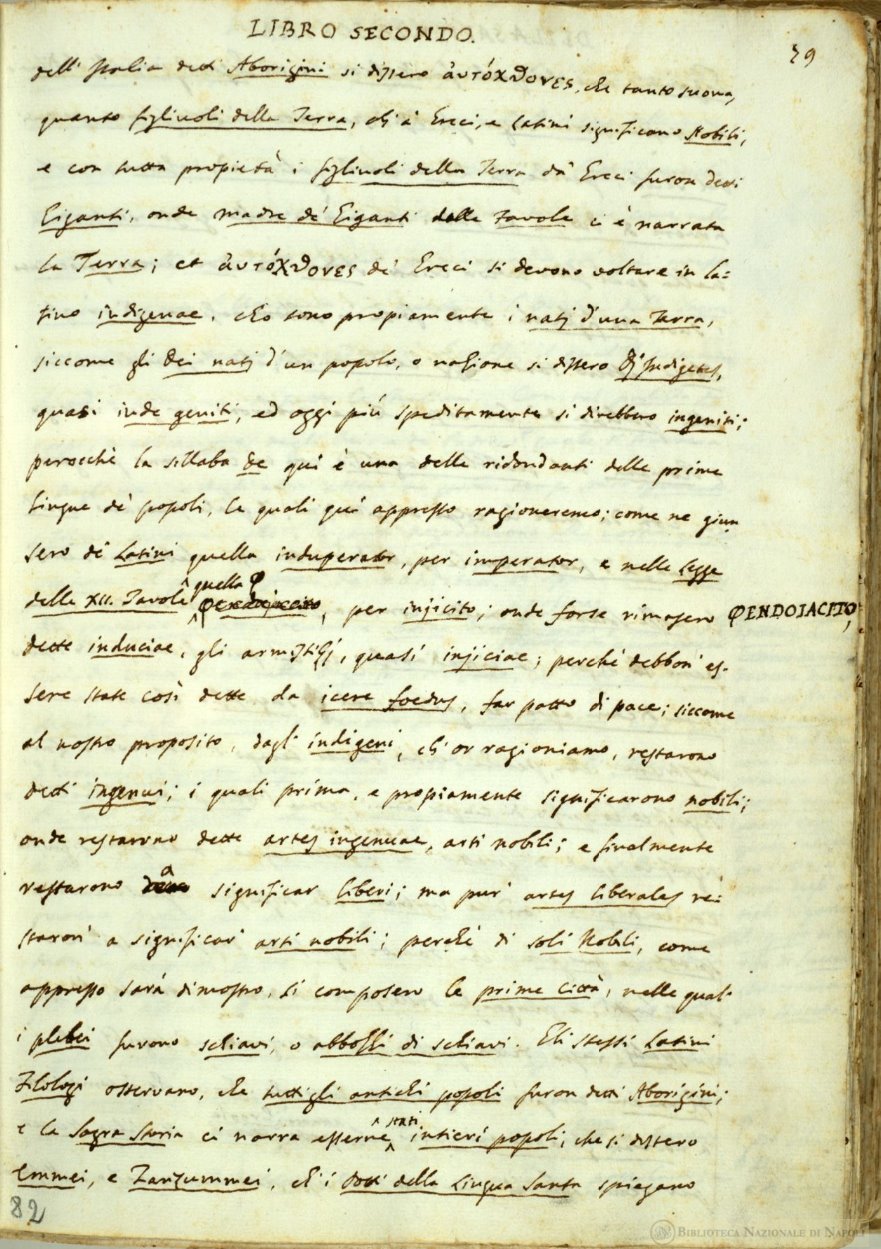 LIBRO SECONDO.
79
dell' Italia detti Aborigini si dissero ἀυτόχθονες, che tanto suona,
quanto figliuoli della Terra, ch' a' Greci, e Latini significano Nobili,
e con tutta propietà i figliuoli della Terra da' Greci furon detti
Giganti, onde madre de' Giganti dalle Favole ci è narrata
la Terra; et ἀυτόχθονες de' Greci si devono voltare in la-
tino indigenae, che sono propiamente i natj d'una Terra,
siccome gli Dei natj d'un popolo, o nazione si dissero Dj Indigetes,
quasi inde geniti, ed oggi più speditamente si direbbero ingeniti;
perocchè la sillaba de qui è una delle ridondanti delle prime
Lingue de' popoli, le quali qui appresso ragioneremo; come ne giun
sero de' Latini quella induperator, per imperator, e nelle Legge
delle XII. Tavole quella φ, per injicito; onde forse rimasero ΦENDOIACITO,
dette induciae, gli armistizj, quasi injiciae; perchè debbon' es-
sere state così dette da icere foedus, far patto di pace; siccome
al nostro proposito, dagl' indigeni, ch' or ragioniamo, restarono
detti ingenui; i quali prima, e propiamente significarono nobili;
onde restarono dette artes ingenuae, arti nobili; e finalmente
restarono a significar liberi; ma pur' artes liberales re-
staron' a significar' arti nobili; perchè di soli Nobili, come
appresso sarà dimostro, si composero le prime città, nelle quali
i plebei furono schiavi, o abbozzi di schiavi. Gli stessi Latini
Filologi osservano, che tutti gli antichi popoli furon detti Aborigini;
e la Sagra Storia ci narra esserne stati intieri popoli, che si dissero
Emmei, e Zanzummei, ch' i Dotti della Lingua Santa spiegano
82
BIBLIOTECA NAZIONALE DI NAPOLI